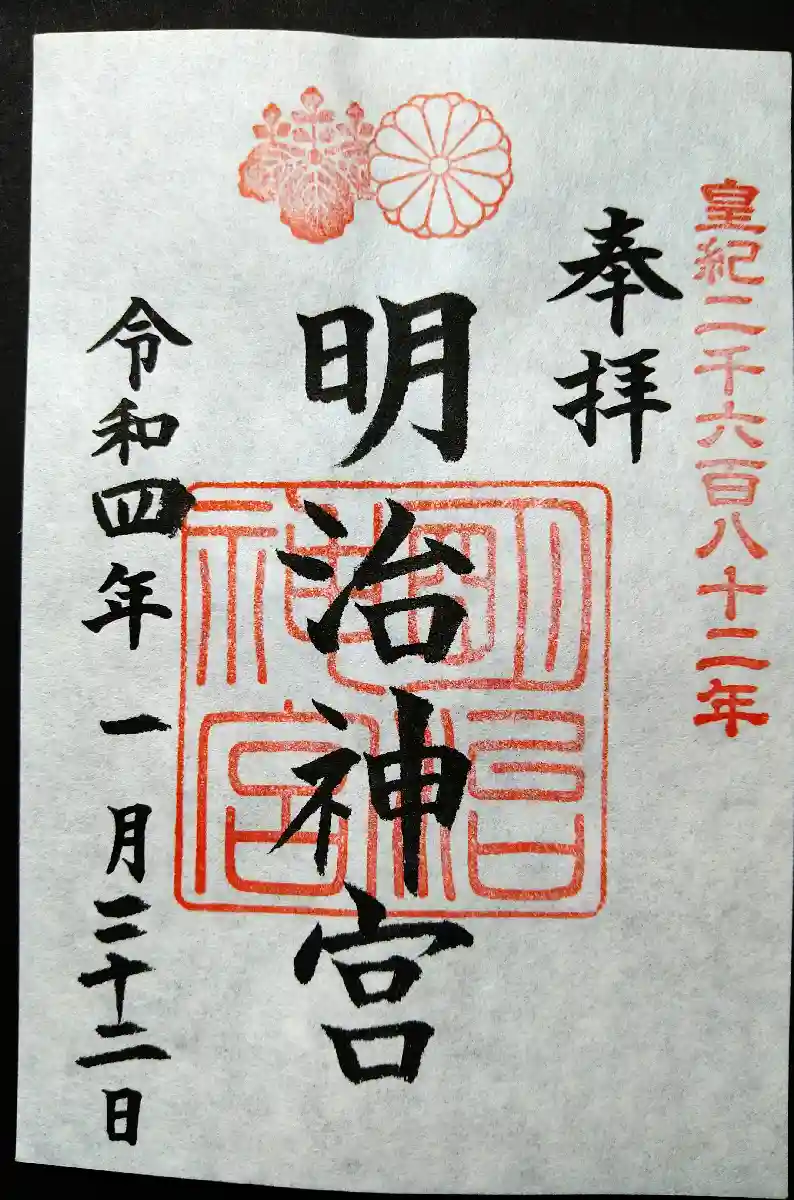 皇紀二千六百八十二年
奉拝
明治神宮
明治
神宮
令和四年一月二十二日